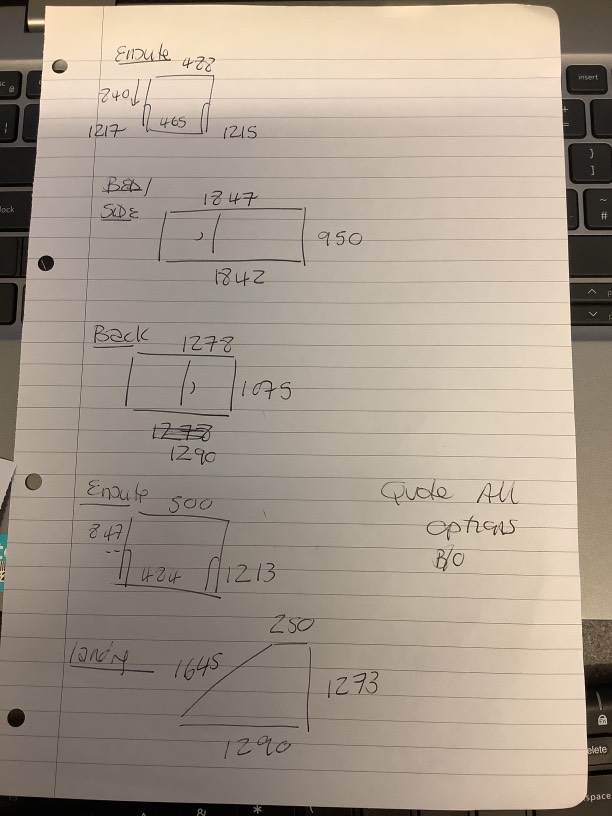 Ensuite 422
240
465
1217 1215
BED/
SIDE
1847
950
1842
Back 1278
1075
1278
1290
Ensuite 500
247
424 1213
Quote All
options
B/O
250
landing 1645
1273
1290
insert
lock
}
]
~
#
delete
space
&
*
(